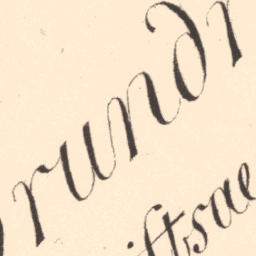 rundr
iftsae